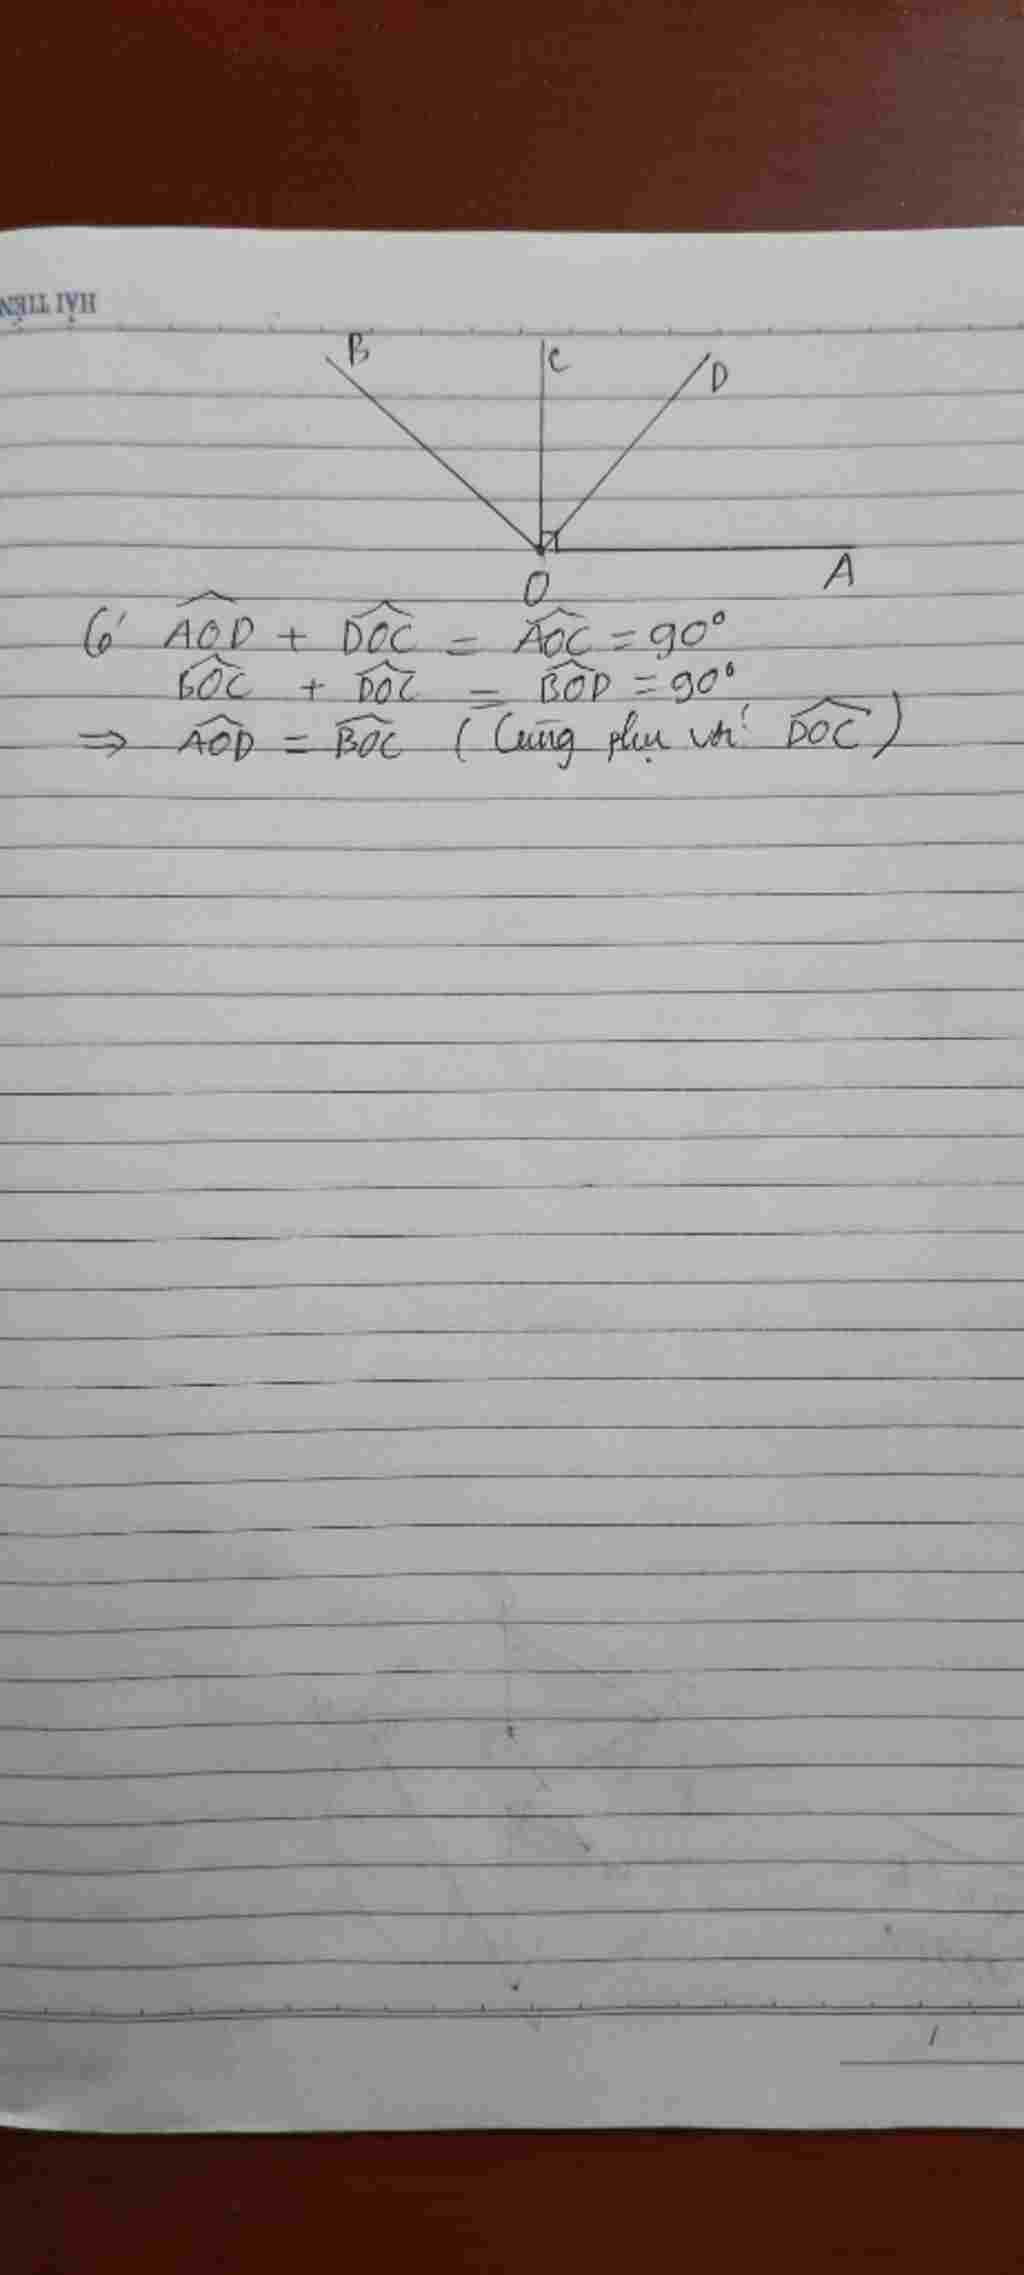 HẢI TIẾN
B C D
O A
Có AOD + DOC = AOC = 90°
BOC + DOC = BOD = 90°
⇒ AOD = BOC (Cùng phụ với DOC)